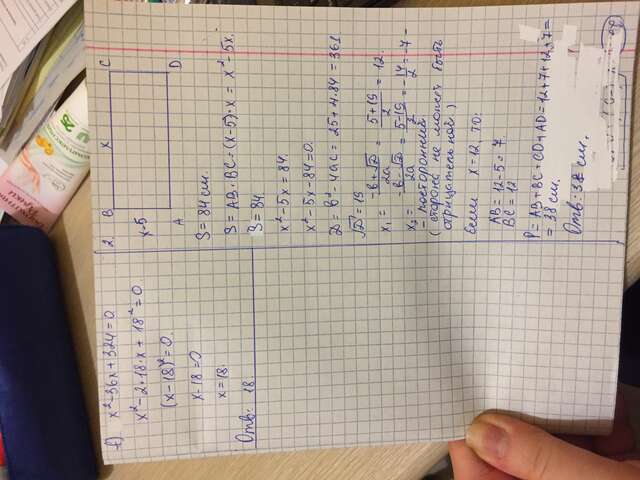 е) x²-36x+324=0
x²-2·18·x+18²=0
(x-18)²=0.
x-18=0
x=18.
Отв: 18.
2. B x C
x-5
A D
S=84 см.
S=AB·BC=(x-5)·x=x²-5x.
S=84.
x²-5x=84.
x²-5x-84=0.
D=b²-4ac=25+4·84=361
√D=19
x₁=(-b+√D)/2a=(5+19)/2=12.
x₂=(-b-√D)/2a=(5-19)/2=-14/2=-7-
- посторонний
(сторона не может быть
отрицательной.)
Если x=12, то:
AB=12-5=7.
BC=12
P=AB+BC+CD+AD=12+7+12+7=
=38 см.
Отв: 38 см.
25